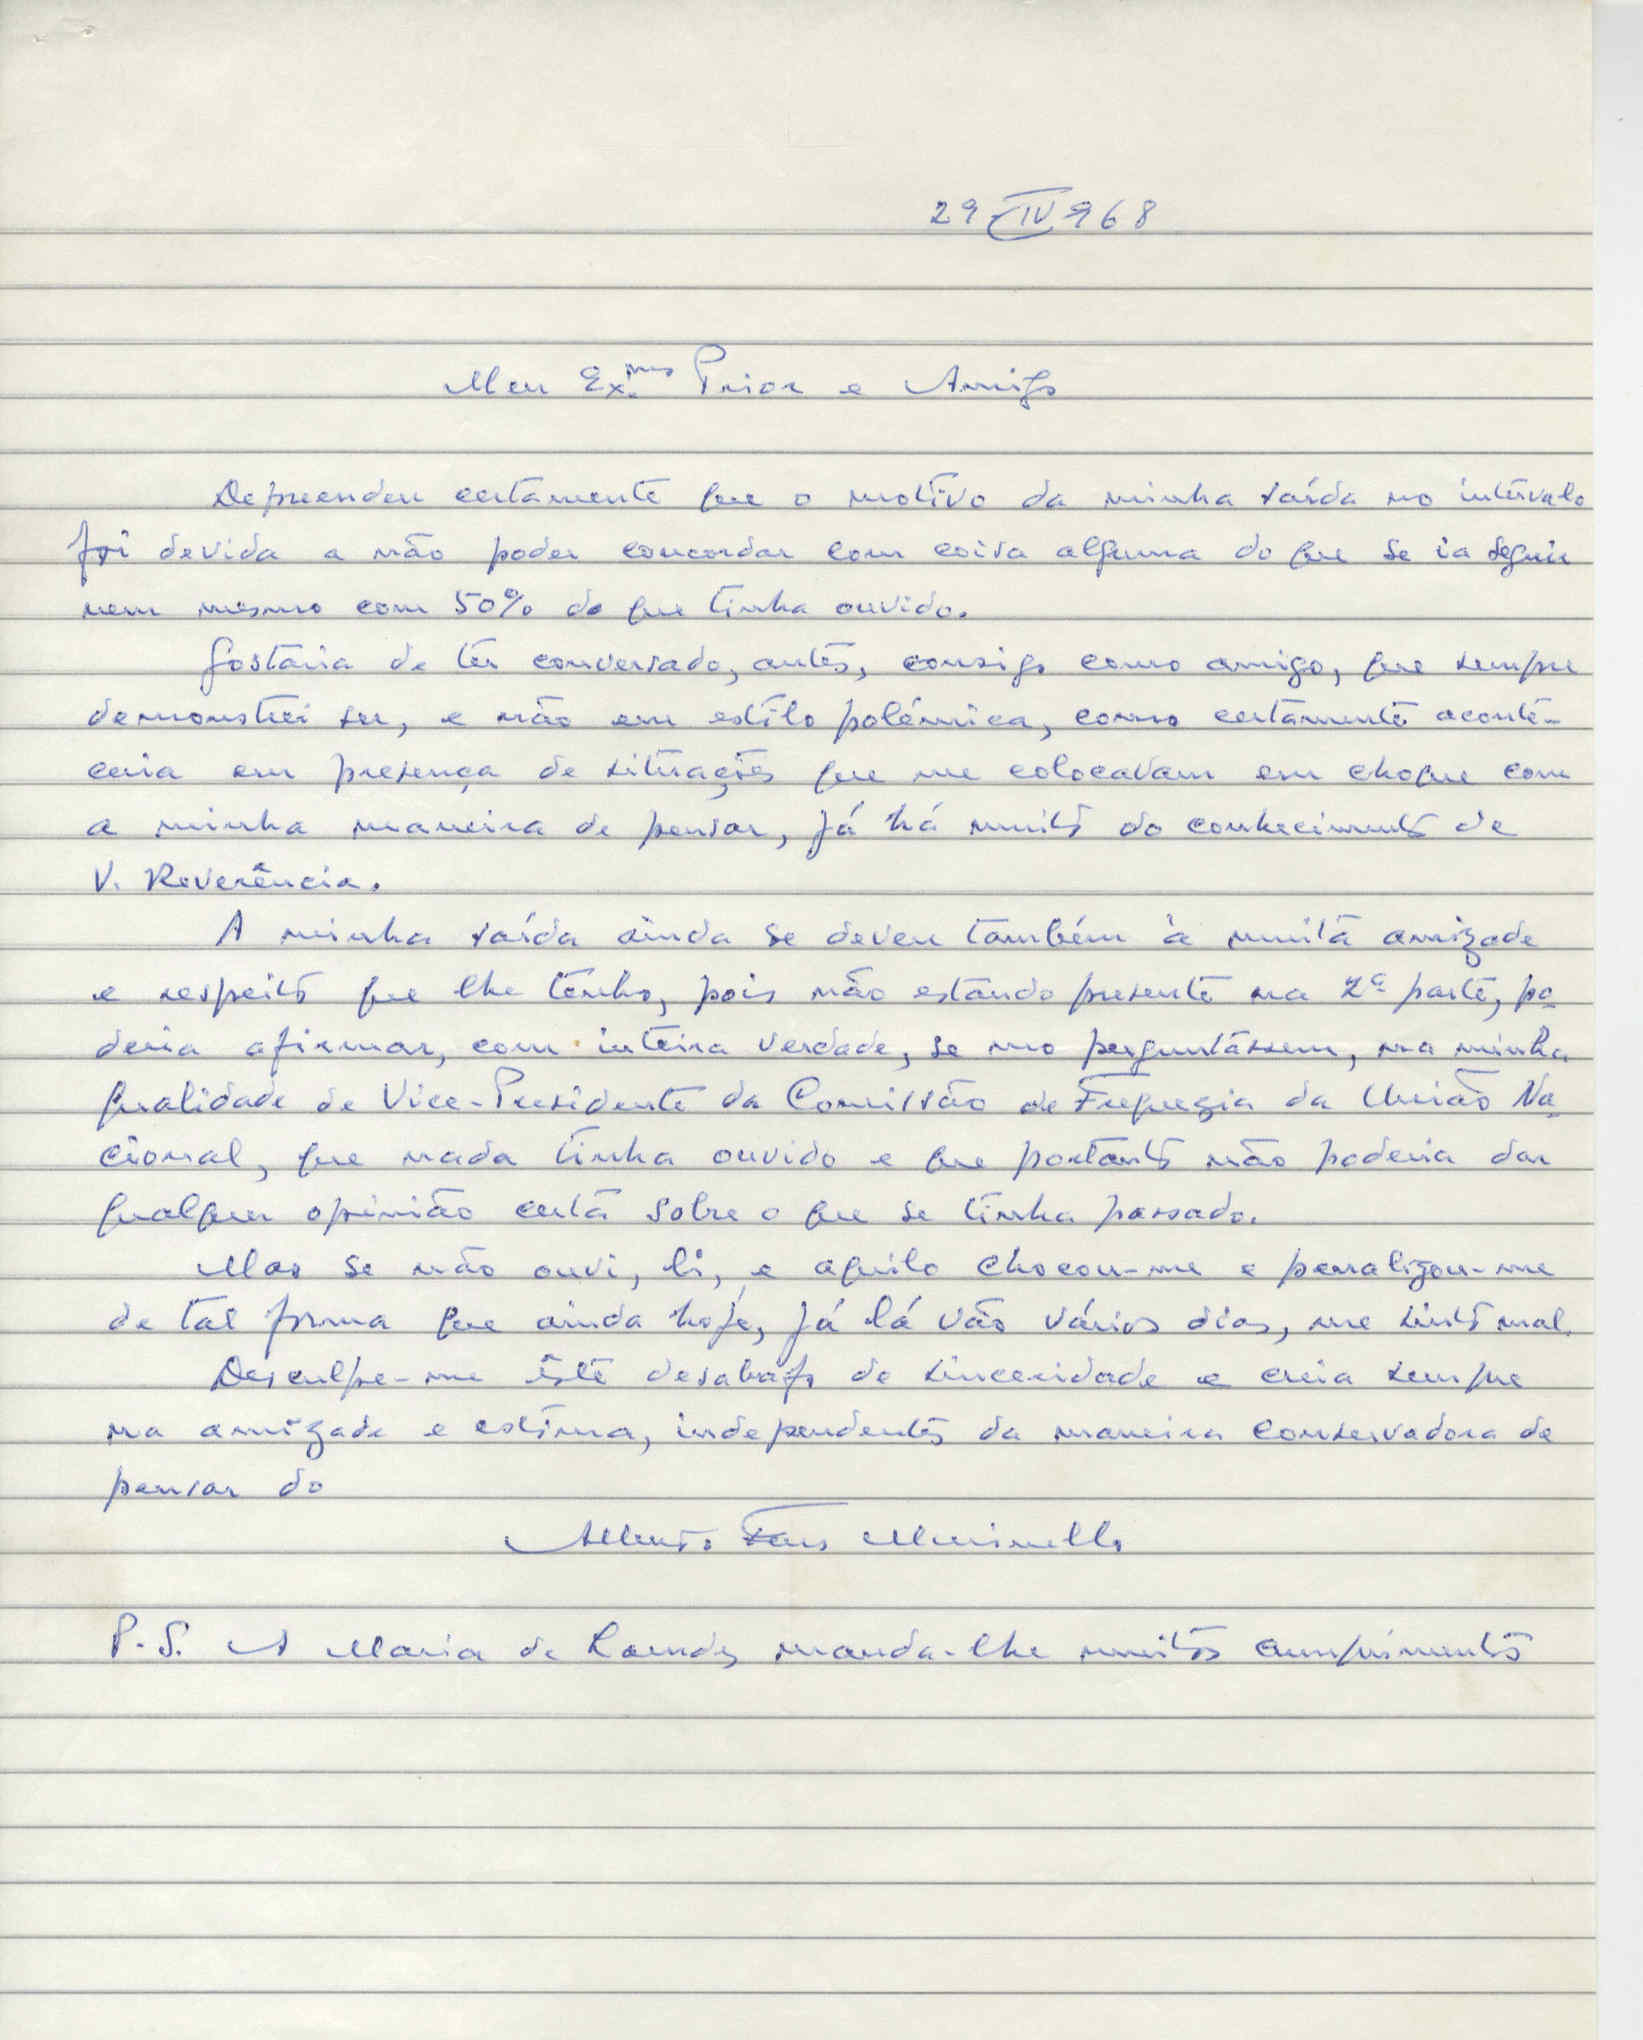 29 IV 968
Meu Ex.mo Prior e Amigo
Depreendeu certamente que o motivo da minha saída no intervalo
foi devida a não poder concordar com coisa alguma do que se ia seguir
nem mesmo com 50% do que tinha ouvido.
Gostaria de ter conversado, antes, consigo como amigo, que sempre
demonstrei ser, e não em estilo polémica, como certamente aconte-
ceria em presença de situações que me colocavam em choque com
a minha maneira de pensar, já há muito do conhecimento de
V. Reverência.
A minha saída ainda se deveu também à muita amizade
e respeito que lhe tenho, pois não estando presente na 2ª parte, po-
deria afirmar, com inteira verdade, se mo perguntássem, na minha
qualidade de Vice-Presidente da Comissão de Freguezia da União Na-
cional, que nada tinha ouvido e que portanto não poderia dar
qualquer opinião certa sobre o que se tinha passado.
Mas se não ouvi, li, e aquilo chocou-me e penalizou-me
de tal forma que ainda hoje, já lá vão vários dias, me sinto mal.
Desculpe-me êste desabafo de sinceridade e creia sempre
na amizade e estima, independentes da maneira conservadora de
pensar do
Alberto
P.S. A Maria de Lourdes manda-lhe muitos cumprimentos